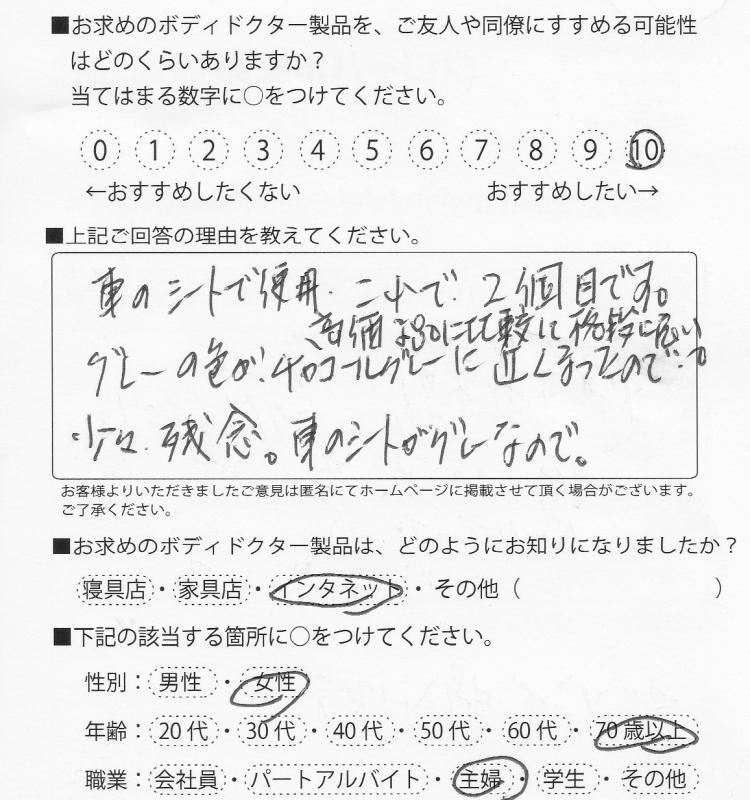 ■お求めのボディドクター製品を、ご友人や同僚にすすめる可能性
はどのくらいありますか？
当てはまる数字に○をつけてください。
0 1 2 3 4 5 6 7 8 9 10
←おすすめしたくない おすすめしたい→
■上記ご回答の理由を教えてください。
車のシートで使用。これで、2個目です。
高価なものに比較して 格段に良い
グレーの色が、チャコールグレーに近くなったので、
少々、残念。車のシートがグレーなので。
お客様よりいただきましたご意見は匿名にてホームページに掲載させて頂く場合がございます。
ご了承ください。
■お求めのボディドクター製品は、どのようにお知りになりましたか？
寝具店・家具店・インタネット・その他（ ）
■下記の該当する箇所に○をつけてください。
性別：男性・女性
年齢：20代・30代・40代・50代・60代・70歳以上
職業：会社員・パートアルバイト・主婦・学生・その他